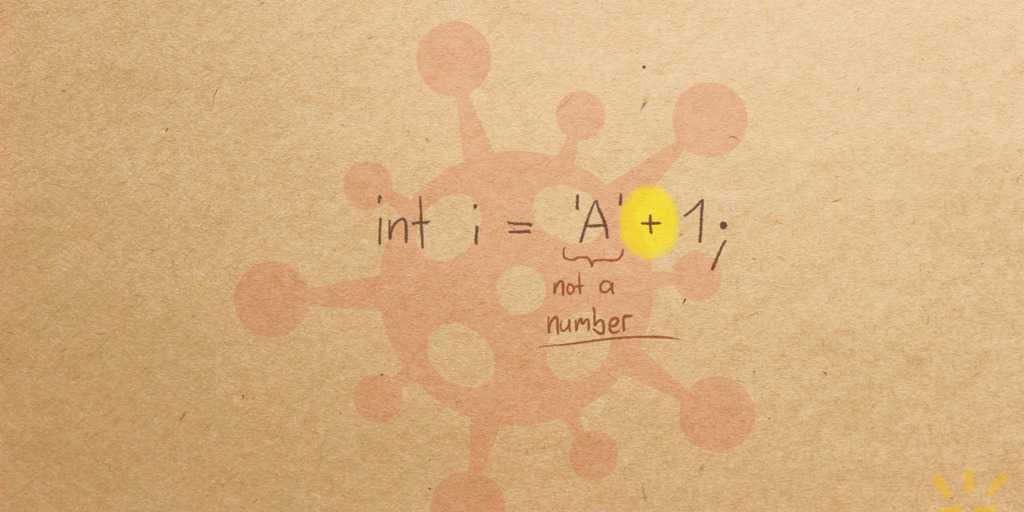 int i = 'A' + 1;
not a
number